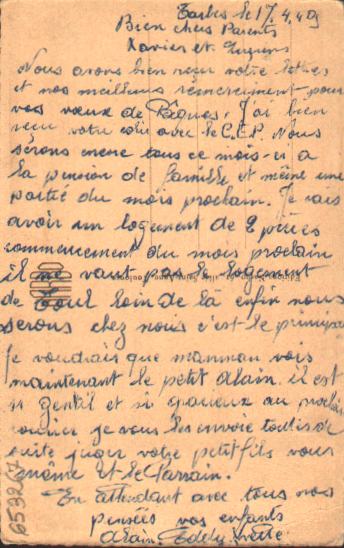 Tarbes le 17.4.49
Bien chers Parents
Xavier et
Nous avons bien reçu votre lettres
et nos meilleurs remerciement pour
vos vœux de Pâques. J'ai bien
reçu votre colis avec le C.E.P. Nous
serons encore tous ce mois-ci a
la pension de famille et même une
partie du mois prochain. Je vais
avoir un logement de 2 pièces
commencement du mois prochain
il ne vaut pas le logement
de Toul loin de là enfin nous
serons chez nous c'est le principal
Je voudrais que maman vois
maintenant le petit Alain. il est
si gentil et si gracieux au prochain
courier je vous les envoie
suite juger votre petit fils vous
même et le Parrain.
En attendant avec tous nos
pensées vos enfants
Alain. Yvette
653267